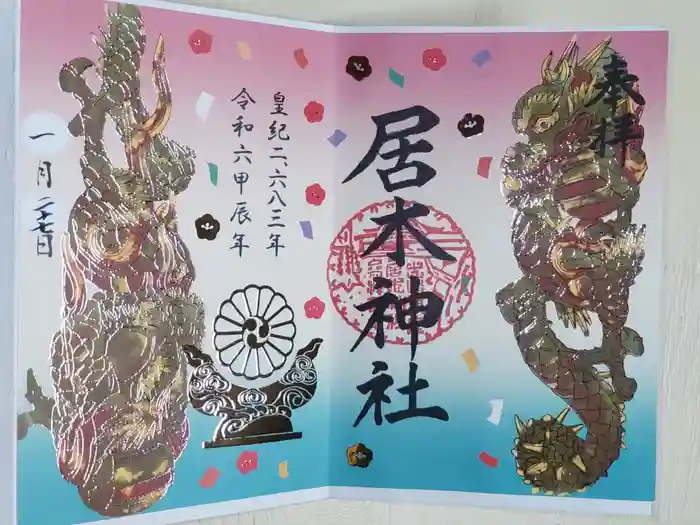 奉拝
居木神社
皇紀二、六八三年
令和六甲辰年
一月二十七日